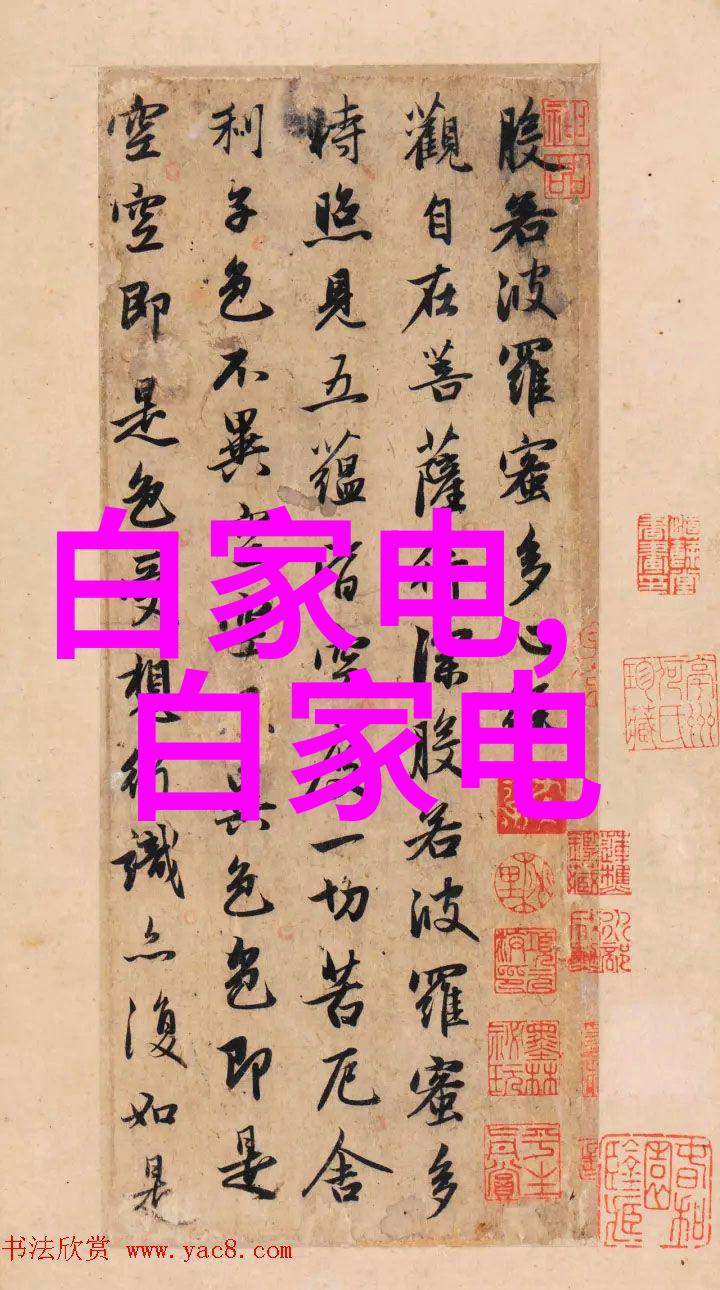 白家电,
白家电
般若波羅蜜多心經
觀自在菩薩行深般若波羅蜜多
時照見五蘊皆空度一切苦厄舍
利子色不異空空不異色色即是
空空即是色受想行識亦復如是
神品
墨林祕玩
书法欣赏 www.yac8.com